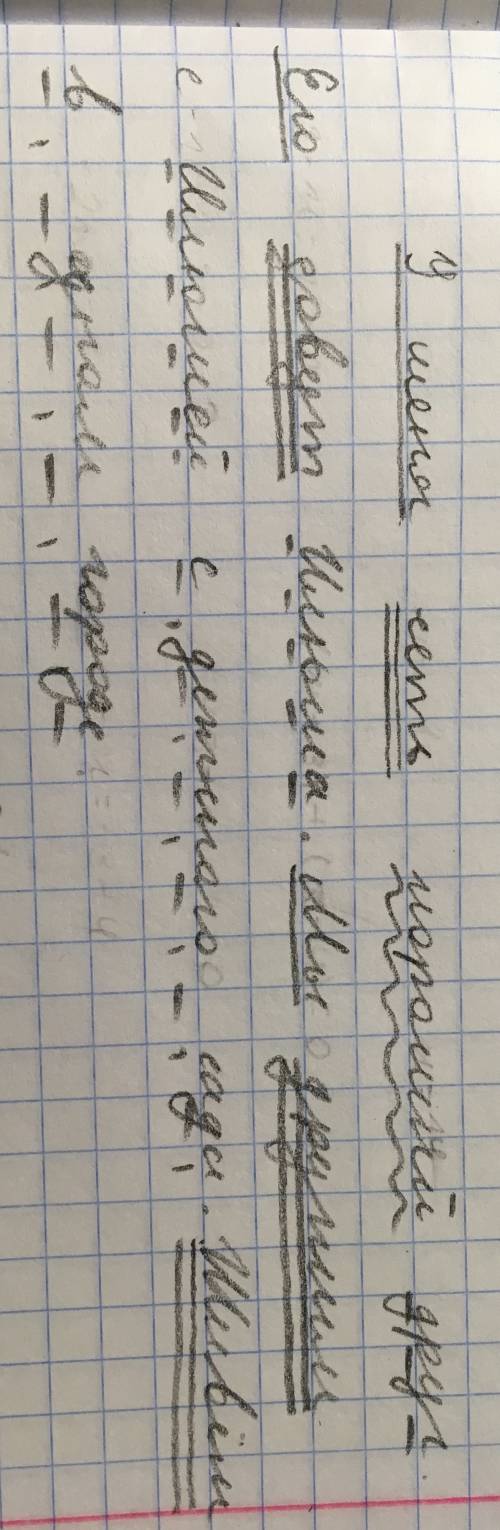 У меня есть хороший друг.
Его зовут Ильыма. Мы дружим
с Илюшей с детского сада. Живём
в одном городе.